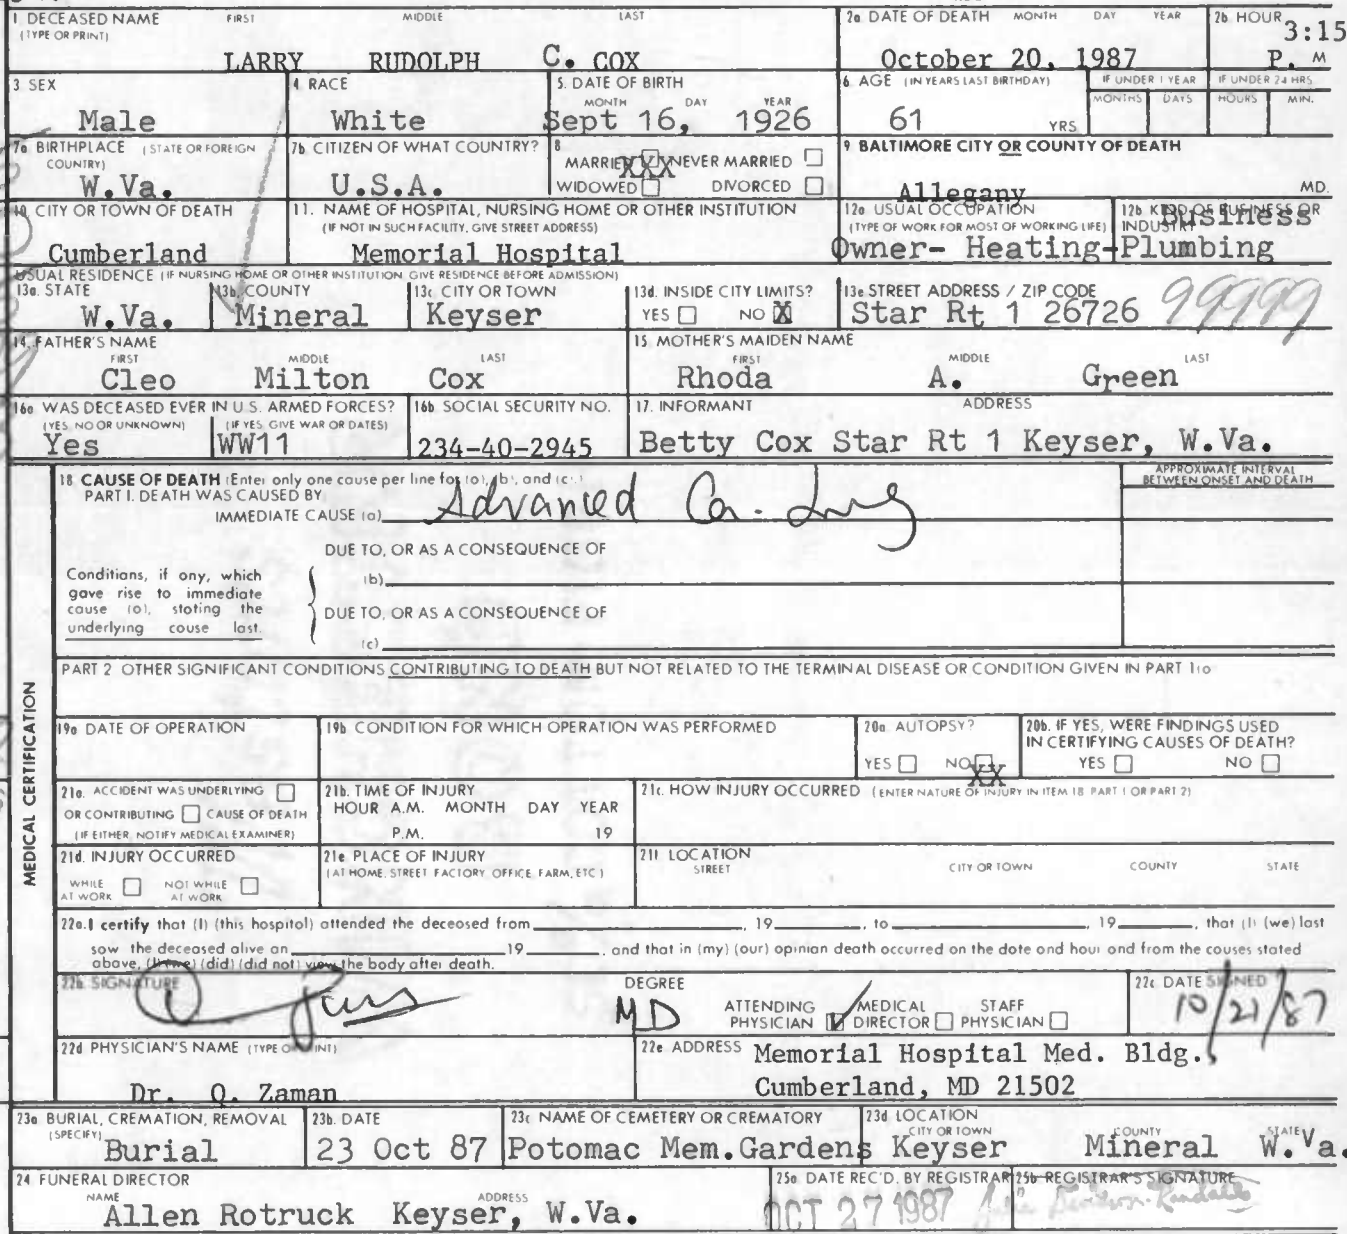 1. DECEASED NAME FIRST MIDDLE LAST
(TYPE OR PRINT)
LARRY RUDOLPH C. COX
2a DATE OF DEATH MONTH DAY YEAR
October 20, 1987
2b. HOUR
3:15
P. M
3 SEX
Male
4. RACE
White
5. DATE OF BIRTH
MONTH DAY YEAR
Sept 16, 1926
6. AGE (IN YEARS LAST BIRTHDAY)
61 YRS.
IF UNDER 1 YEAR
MONTHS DAYS
IF UNDER 24 HRS
HOURS MIN.
7a BIRTHPLACE (STATE OR FOREIGN
COUNTRY)
W.Va.
7b. CITIZEN OF WHAT COUNTRY?
U.S.A.
8
MARRIED XXX NEVER MARRIED
WIDOWED DIVORCED
9 BALTIMORE CITY OR COUNTY OF DEATH
Allegany MD.
10. CITY OR TOWN OF DEATH
Cumberland
11. NAME OF HOSPITAL, NURSING HOME OR OTHER INSTITUTION
(IF NOT IN SUCH FACILITY, GIVE STREET ADDRESS)
Memorial Hospital
12a USUAL OCCUPATION
(TYPE OF WORK FOR MOST OF WORKING LIFE)
12b. KIND OF BUSINESS OR
INDUSTRY Business
Owner- Heating-Plumbing
USUAL RESIDENCE (IF NURSING HOME OR OTHER INSTITUTION GIVE RESIDENCE BEFORE ADMISSION)
13a. STATE
W.Va.
13b. COUNTY
Mineral
13c. CITY OR TOWN
Keyser
13d. INSIDE CITY LIMITS?
YES NO X
13e STREET ADDRESS / ZIP CODE
Star Rt 1 26726 99999
14. FATHER'S NAME
FIRST MIDDLE LAST
Cleo Milton Cox
15. MOTHER'S MAIDEN NAME
FIRST MIDDLE LAST
Rhoda A. Green
16a WAS DECEASED EVER IN U.S. ARMED FORCES?
(YES, NO OR UNKNOWN) (IF YES, GIVE WAR OR DATES)
Yes WW11
16b SOCIAL SECURITY NO.
234-40-2945
17. INFORMANT ADDRESS
Betty Cox Star Rt 1 Keyser, W.Va.
MEDICAL CERTIFICATION
18 CAUSE OF DEATH (Enter only one cause per line for (a), (b), and (c).)
PART I. DEATH WAS CAUSED BY:
IMMEDIATE CAUSE (a) Advanced Ca. Lung
APPROXIMATE INTERVAL
BETWEEN ONSET AND DEATH
DUE TO, OR AS A CONSEQUENCE OF
(b)
Conditions, if any, which
gave rise to immediate
cause (a), stating the
underlying cause last.
DUE TO, OR AS A CONSEQUENCE OF
(c)
PART 2 OTHER SIGNIFICANT CONDITIONS CONTRIBUTING TO DEATH BUT NOT RELATED TO THE TERMINAL DISEASE OR CONDITION GIVEN IN PART 1(a)
19a DATE OF OPERATION
19b CONDITION FOR WHICH OPERATION WAS PERFORMED
20a. AUTOPSY?
YES NO XX
20b. IF YES, WERE FINDINGS USED
IN CERTIFYING CAUSES OF DEATH?
YES NO
21a. ACCIDENT WAS UNDERLYING
OR CONTRIBUTING CAUSE OF DEATH
(IF EITHER, NOTIFY MEDICAL EXAMINER)
21b. TIME OF INJURY
HOUR A.M. MONTH DAY YEAR
P.M. 19
21c. HOW INJURY OCCURRED (ENTER NATURE OF INJURY IN ITEM 18 PART 1 OR PART 2)
21d. INJURY OCCURRED
WHILE AT WORK NOT WHILE AT WORK
21e PLACE OF INJURY
(AT HOME, STREET, FACTORY, OFFICE, FARM, ETC.)
21f. LOCATION
STREET CITY OR TOWN COUNTY STATE
22a. I certify that (I) (this hospital) attended the deceased from , 19 , to , 19 , that (I) (we) last
saw the deceased alive on 19 , and that in (my) (our) opinion death occurred on the date and hour and from the causes stated
above, (I) (we) (did) (did not) view the body after death.
22b. SIGNATURE
DEGREE
MD
ATTENDING PHYSICIAN MEDICAL DIRECTOR STAFF PHYSICIAN
22c DATE SIGNED
10/21/87
22d PHYSICIAN'S NAME (TYPE OR PRINT)
Dr. Q. Zaman
22e ADDRESS Memorial Hospital Med. Bldg.
Cumberland, MD 21502
23a BURIAL, CREMATION, REMOVAL
(SPECIFY)
Burial
23b. DATE
23 Oct 87
23c NAME OF CEMETERY OR CREMATORY
Potomac Mem.Gardens
23d LOCATION
CITY OR TOWN COUNTY STATE
Keyser Mineral W.Va.
24 FUNERAL DIRECTOR
NAME ADDRESS
Allen Rotruck Keyser, W.Va.
25a DATE REC'D. BY REGISTRAR
OCT 27 1987
25b REGISTRAR'S SIGNATURE